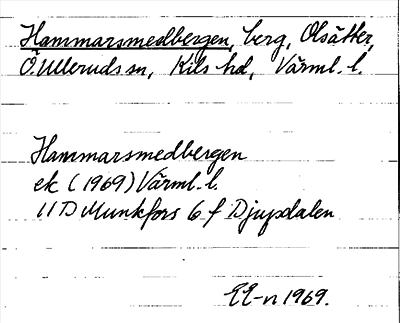 Hammarsmedbergen, berg, Olsätter,
Ö. Ulleruds sn, Kils hd, Värml. l.
Hammarsmedbergen
ek (1969) Värml. l.
11D Munkfors 6 f Djupdalen
EE-n 1969.